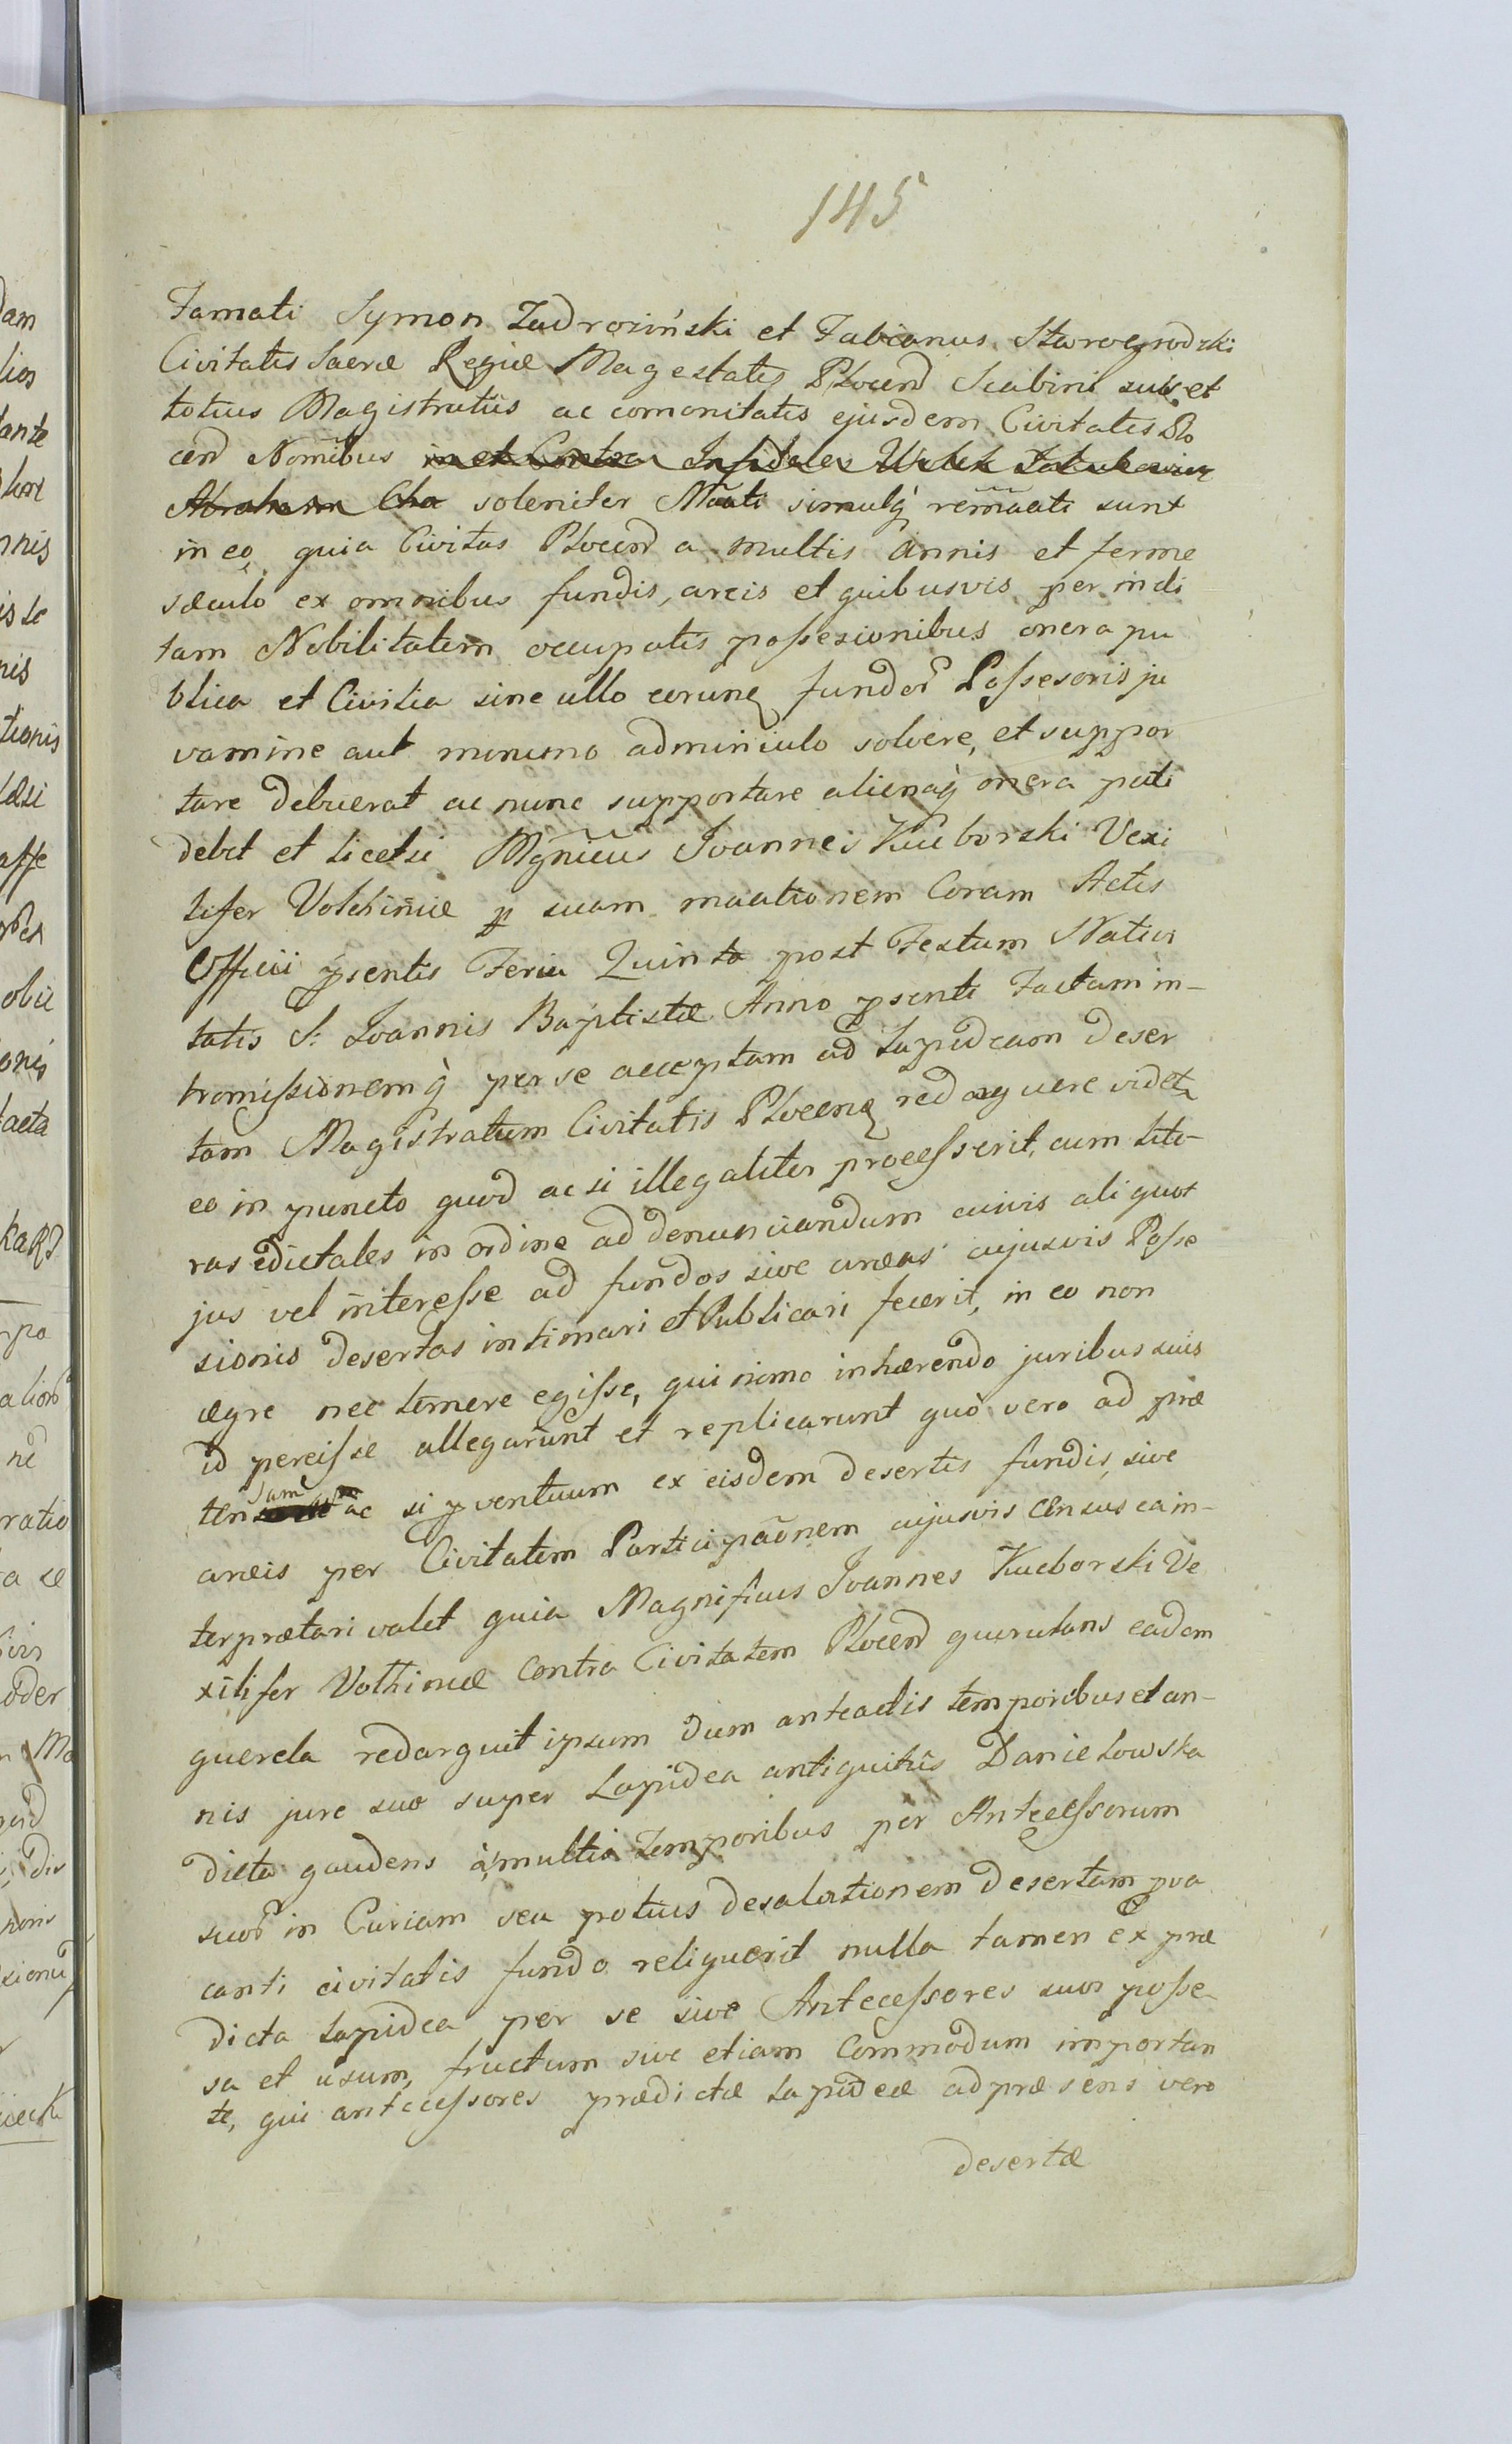 145
Famati Symon Zadroziński et Fabianus Starogrodzki
Civitatis Sacræ Regiæ Magestatis Plocen͂ Scabini suis et
totius Magistratûs ac comonitatis ejusdem Civitatis Plo
cen͂ Nom̃ibus in et Contra Infideles
Abraham Cha soleniter M̃ati simulq́ rem̃ati sunt
in eo, quia Civitas Plocen͂ a multis annis et ferme
sæculo ex omnibus fundis, areis et quibusvis per indi
tam Nobilitatem occupatis possesionibus onera pu
blica et Civilia sine ullo eorunḍ fundor͂ Possesoris ju
vamine aut minimo adminiculo solvere, et suppor
tare debuerat ac nunc supportare alienaq́ onera pati
debet et licetsi Mg̃nicus Joannes Kucborski Vexi
lifer Volhiniæ p suam maationem Coram Actis
Officii p̃sentis Feria Quinta post Festum Nativi
tatis S: Joannis Baptistæ Anno p̃senti Factam in-
tromissionemq́ per se acceptam ad Lapideam deser
tam Magistratum Civitatis Plocenḍ redarguere videt
eo in puncto quod ac si illegaliter processerit, cum lite-
ras edictales in ordine ad denunciandum cuivis aliquot
jus vel interesse ad fundos sive areas cujusvis Posse
sionis desertas intimari et Publicari fecerit, in eo non
ægre nec temere egisse, qui nimo inhærendo juribus suis
id pereisse allegarunt et replicarunt quò vero ad præ
tensam ac si p̃ventuum ex eisdem desertis fundis, sive
areis per Civitatem Participaõnem cujusvis census ea in-
terprætari valet quia Magnificus Joannes Kucborski Ve
xilifer Volhiniæ contra Civitatem Plocen͂ querulans eadem
querela redarguit ipsum dum anteactis temporibus et an-
nis jure suo super Lapidea antiquitûs Danielowska
dicta gaudens à multis temporibus per Antecessorum
suor͂ in Curiam seu potius desalationem desertam p̃va
canti civitatis fundo reliquerit nulla tamen ex præ
dicta Lapidea per se sive Antecessores suos posse
sa et usum, fructum sive etiam Commodum importan
te, qui antecessores prædictæ Lapideæ ad præsens vero
desertæ